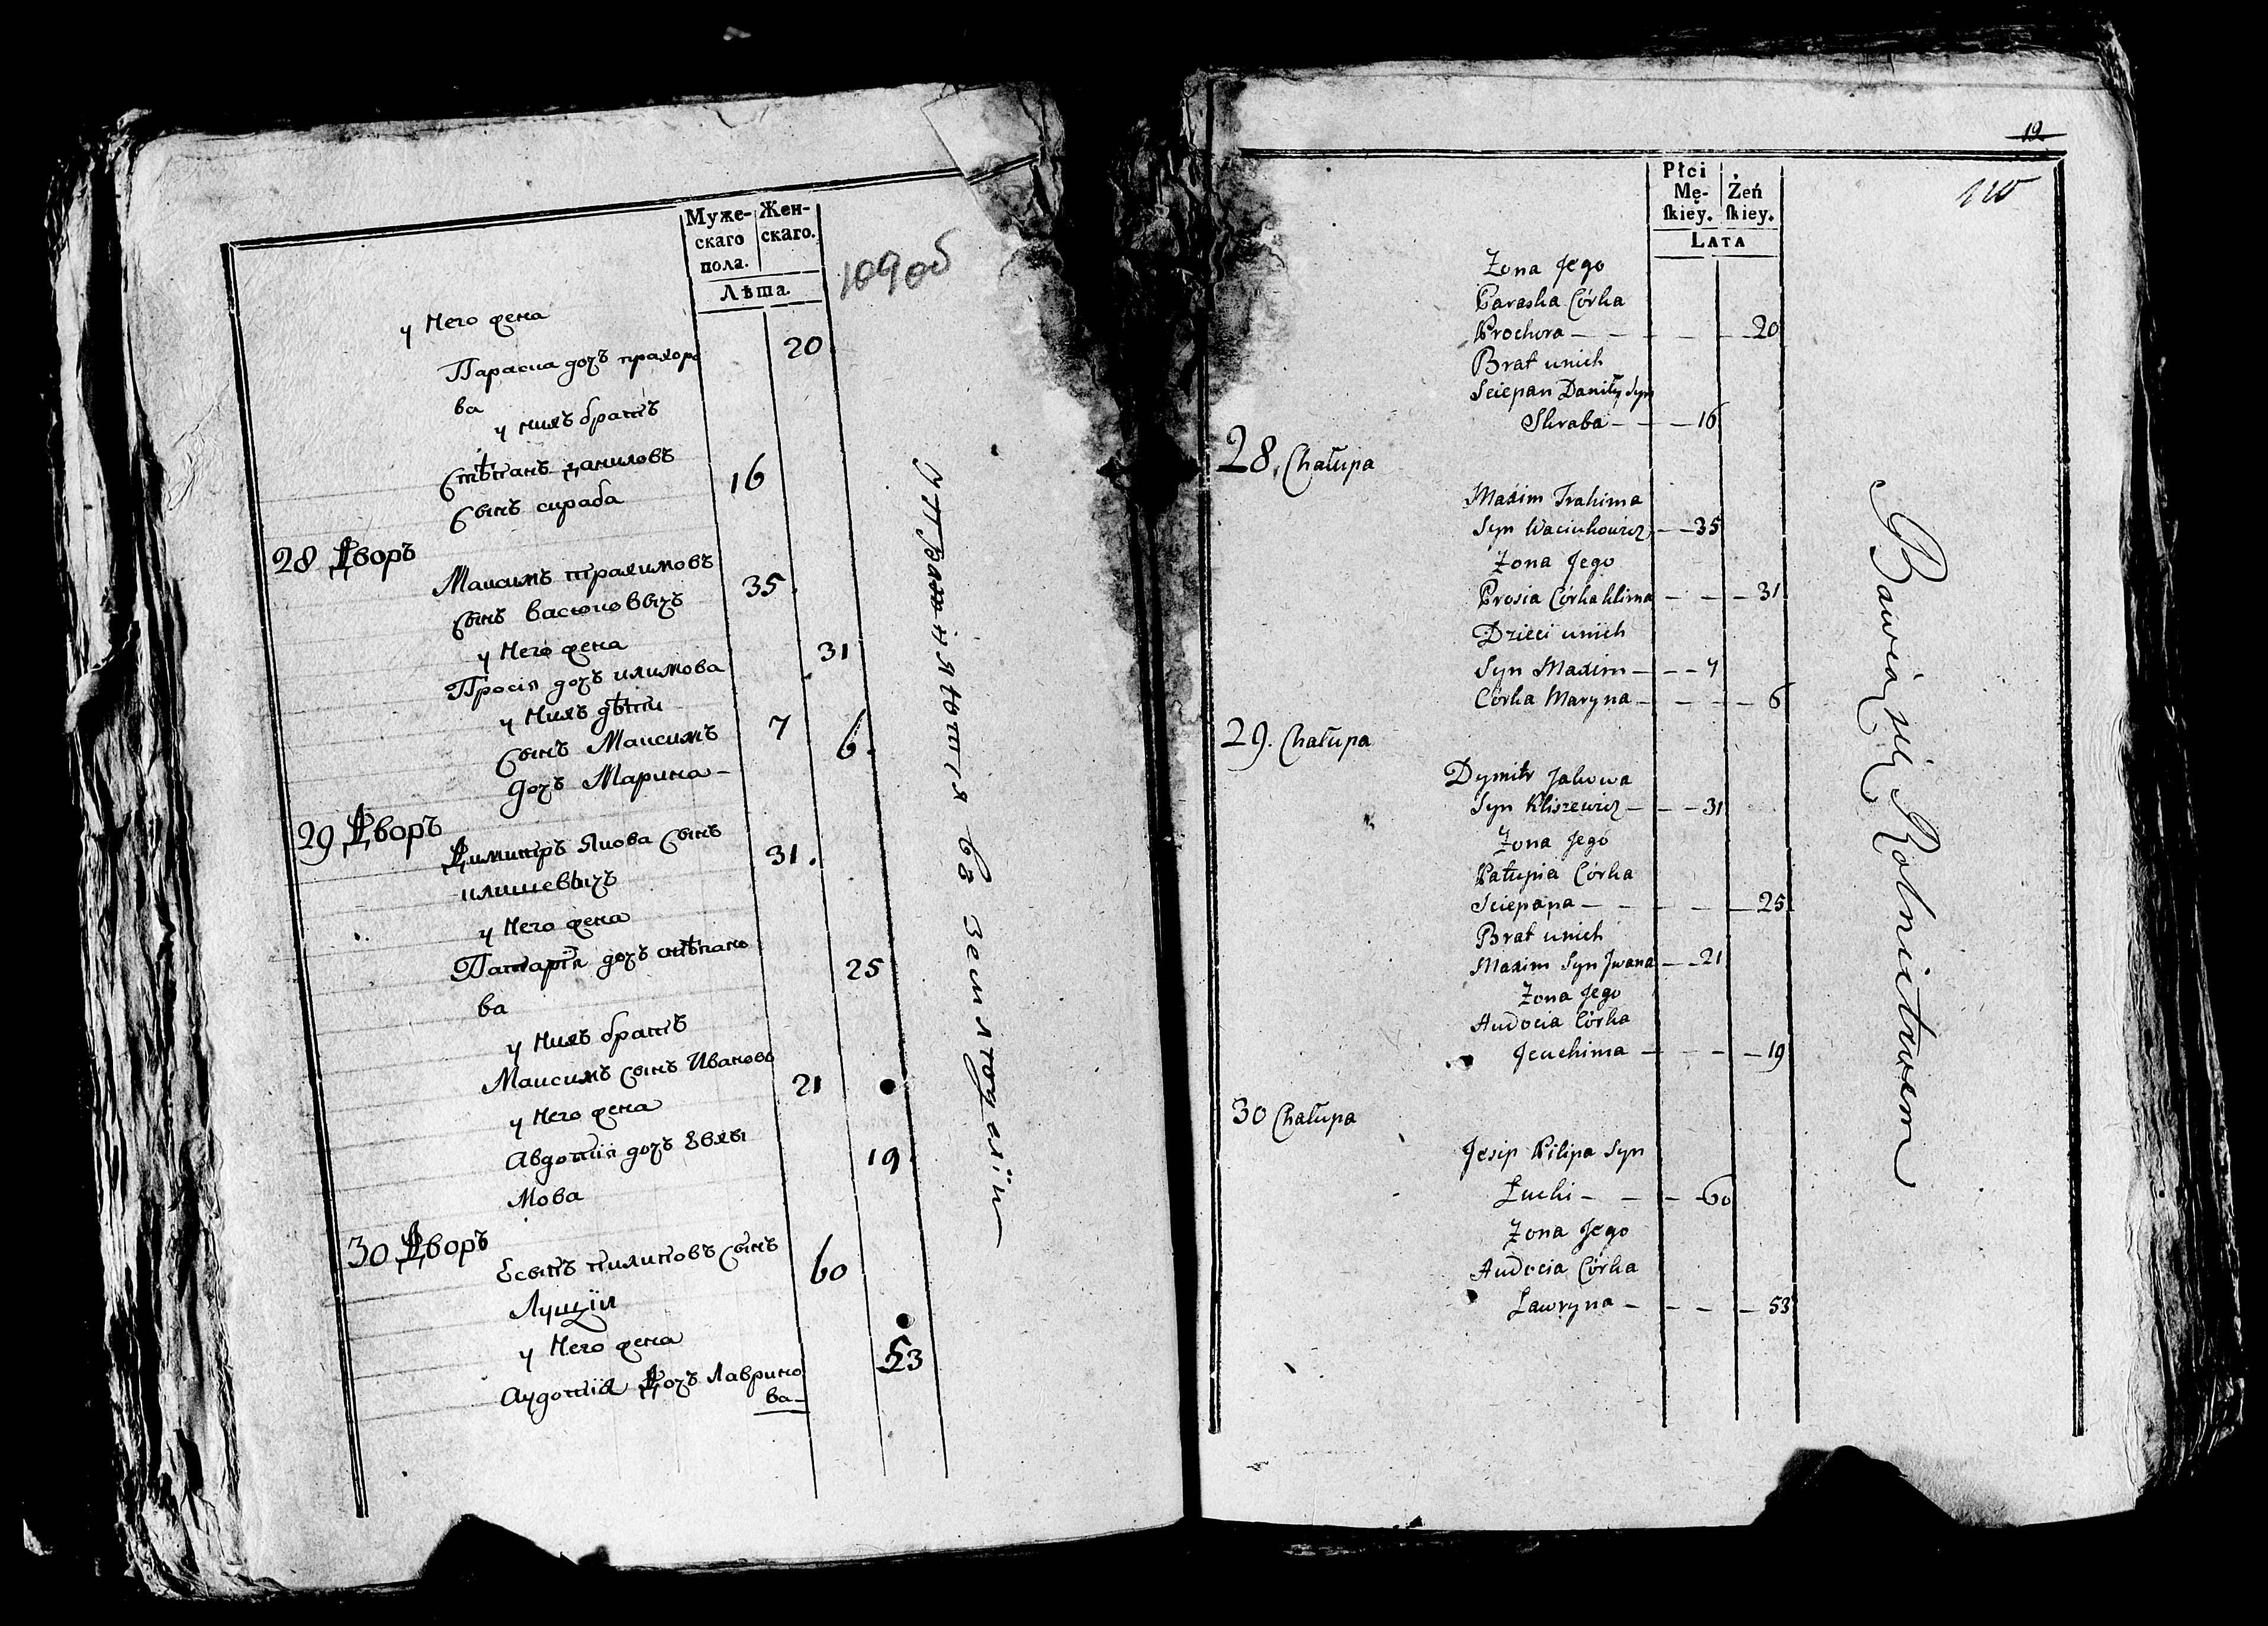 Муже-
скаго
пола.
Жен-
скаго.
Лѣта.
109 об
у Него жена
Параска дочъ прахоро
ва
20
у нихъ братъ
Стѣпанъ даниловъ
Сынъ скраба
16
28 Дворъ
Максимъ трахимовъ
сынъ васюковичъ
35
у Него жена
Просія дочъ климова
31
у Нихъ дѣти
Сынъ Максимъ
7
дочъ Марина
6
29 Дворъ
Димитръ Якова Сынъ
клишевичъ
31.
у Него жена
дочъ стѣпано
ва
25
у Нихъ братъ
Максимъ Сынъ Ивановъ
21
у Него жена
Авдотія дочъ Евхи
мова
19
30 Дворъ
Есыпъ пилиповъ Сынъ
60
у Него жена
Аудотія Дочъ Лаврино
ва
53
12
110
Płci
Mę-
skiey.
Żeń
skiey.
Lata
Zona Jego
Paraska Córka
Prochora 20
Brat unich
Sciepan Daniły Syn
Skraba 16
28. Chałupa
Maxim Trahima
Syn Waciukowicz 35
Zona Jego
Prosia Córka Klima 31
Dzieci unich
Syn Maxim 7
Córka Maryna 6
29. Chałupa
Dymitr Jakowa
Syn Kliszewicz 31
Zona Jego
Pałupia Córka
Sciepana 25
Brat unich
Maxim Syn Jwana 21
Zona Jego
Audocia Córka
Jeuchima 19
30 Chałupa
Jesip Pilipa Syn
Łucki 60
Zona Jego
Audocia Córka
Ławryna 53
Bawią się Rolnictwem